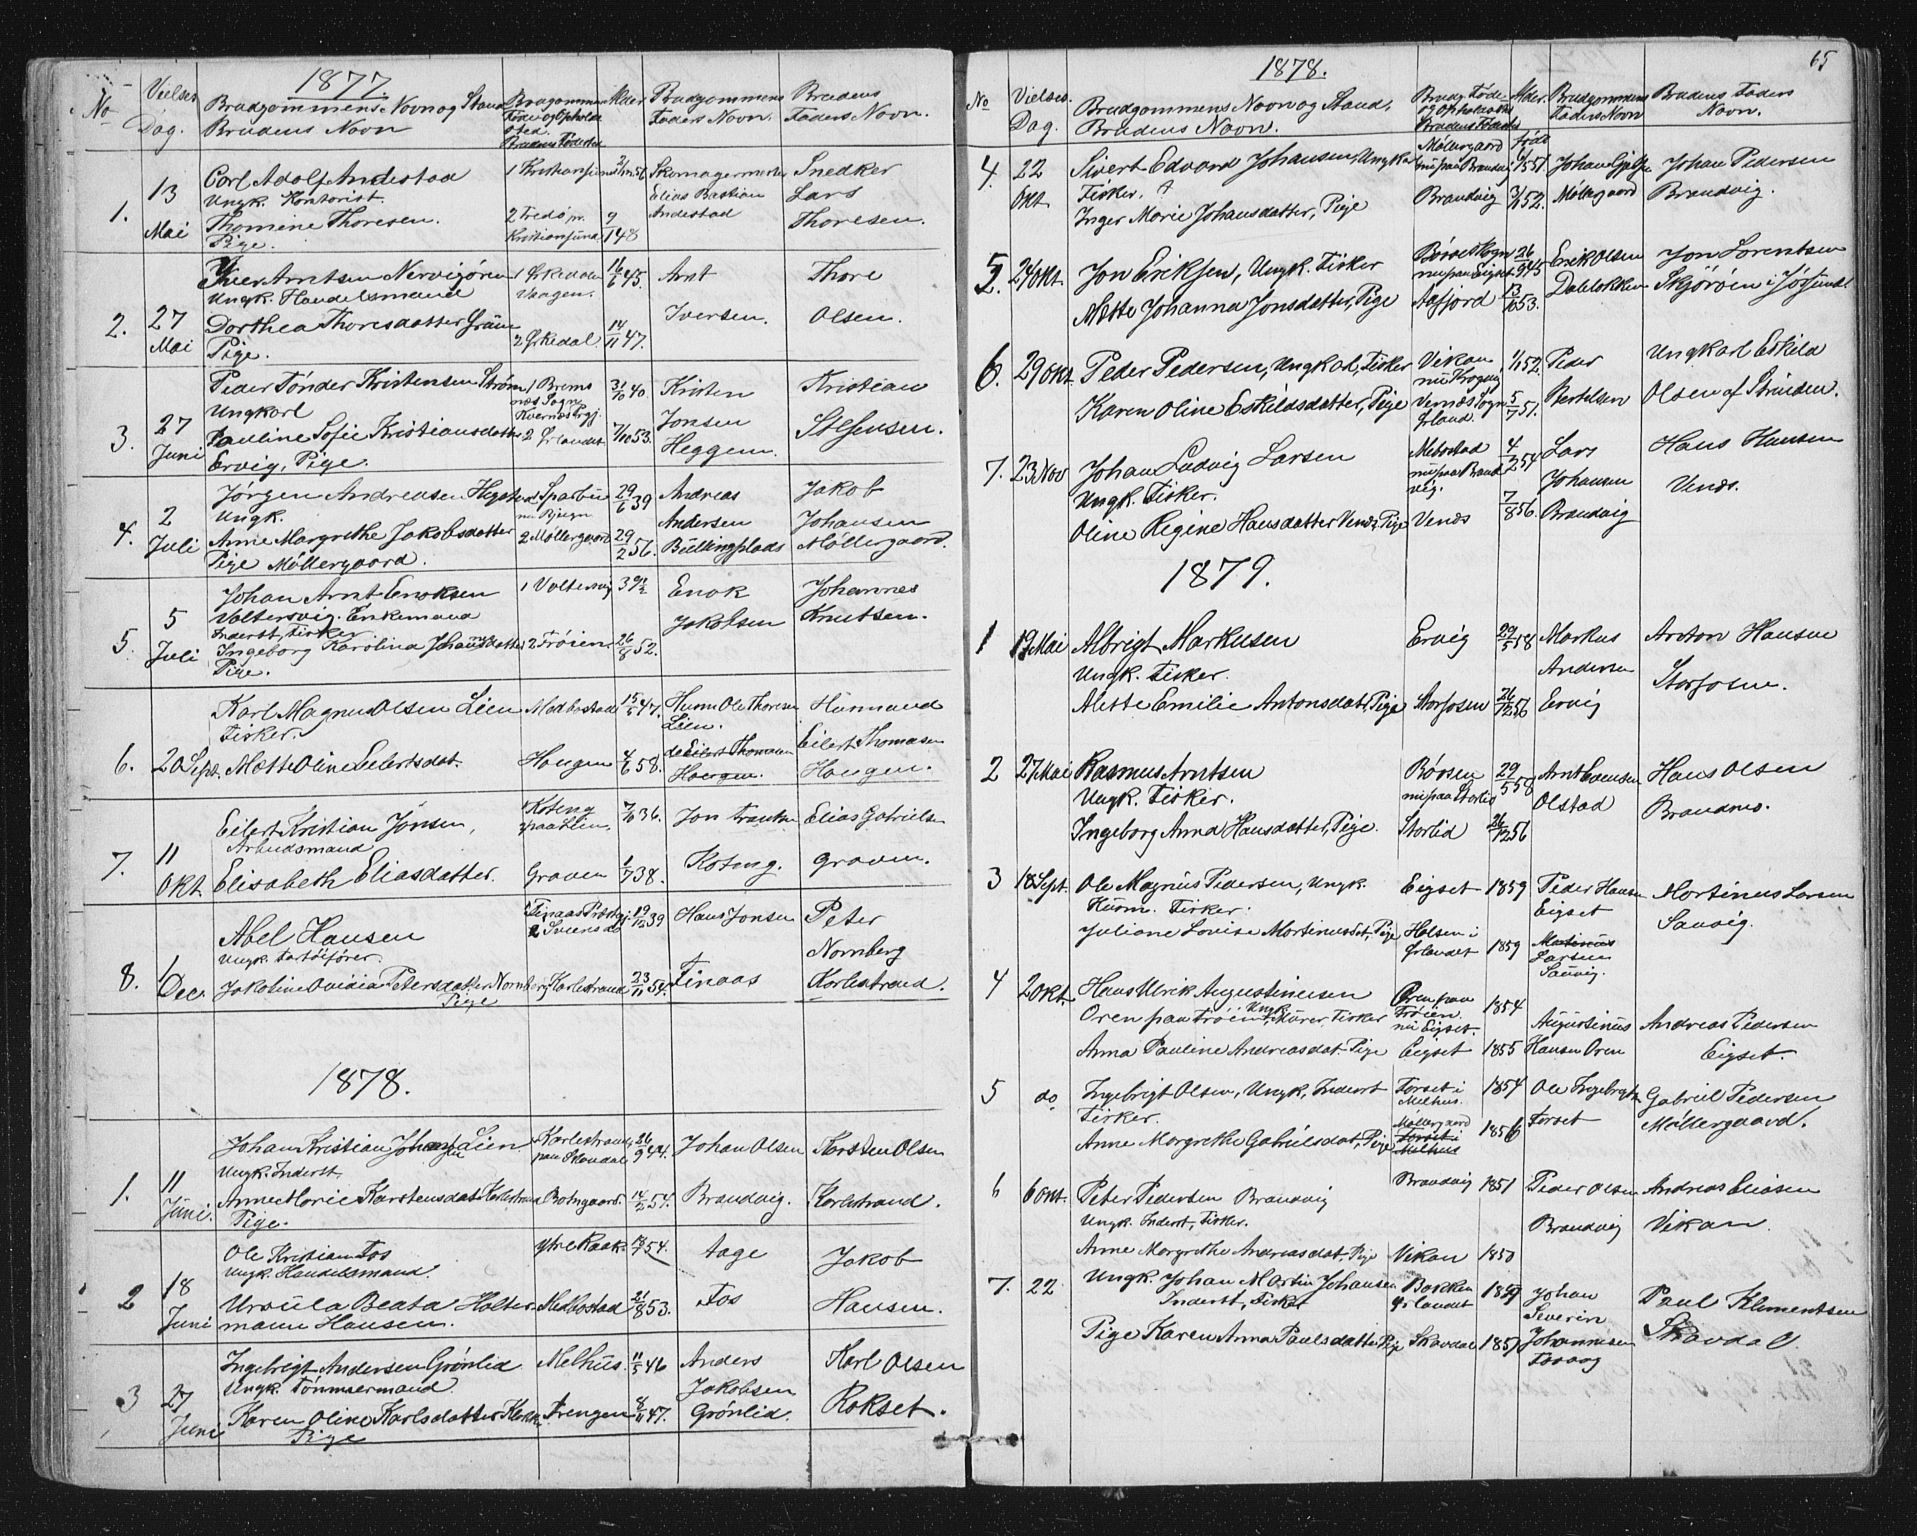 1877.
No
Vielses Dag.
Brudgommens Navn og Stand
Brudens Navn
Brudgommens Føde og Opholdssted.
Brudens Fødested
Alder
Brudgommens Faders Navn.
Brudens Faders Navn.
1.
13 Mai
Carl Adolf Andestad
Ungk. Kontorist.
Thomine Thoresen.
Pige.
1 Kristiansund
2 Fredø pr.
Kristiansund
Skomagermester
Elias Bastian
Andestad
Snedker
Lars
Thoresen.
2.
27 Mai
Iver Arntsen Nervigøren
Ungk. Handelsmand
Dorthea Thoresdatter
Pige.
1 Ørkedalen
2 Ørkedal.
16/6 45.
14/11 47.
Arnt
Iversen.
Thore
Olsen.
3.
27 Juni
Peder Tønder Kristensen Strøm
Ungkarl
Pauline Sofie Kristiansdatter
Ervig, Pige.
1 Bremsnæs Sogn
Kvernæs Prgj.
2 Ørlandet
31/10 40.
7/10 53.
Kristen
Jonsen
Heggem.
Kristian
Steffensen.
4.
2 Juli
Jørgen Andreasen
Ungk.
Anne Margrethe Jakobsdatter
Pige Møllergaard.
1 Sparbu
nu Bjugn
2 Møllergaard
29/6 39
29/2 56.
Andreas
Andersen
Bullingplads
Jakob
Johansen
Møllergaard.
5.
5 Juli
Johan Arnt Enoksen
Voltersvig. Enkemand
Inderst, Fisker
Ingeborg Karolina Johannesdatter
Pige.
1 Voltersvig
2 Frøien
39 1/2
26/8 52.
Enok
Jakobsen
Johannes
Knutsen.
6.
20 Sept.
Karl Magnus Olsen Lien
Fisker.
Mette Oline Eilertsdat.
Madbostad
Hougen
15/5 47.
4/6 58.
Husm Ole Thoresen
Lien.
do Eilert Thomasen
Hougen.
Husmand
Eilert Thomasen
Hougen.
7.
11 Okt.
Eilert Kristian Jonsen,
Arbeidsmand
Elisabeth Eliasdatter.
Koteng
Graven
7/10 36.
1/7 38.
Jon
Koteng.
Elias Gabrielsen
Graven.
8.
1/ Dec.
Abel Hansen
Ungk.
Jakobine Ovidia Petersdatter Nornberg
Pige
Finaas Prestgj.
Karlestrand
19/12 39
23/11 54.
Hans Jonsen
Finaas
Peter
Nornberg
Karlestrand.
1878.
1.
11 Juni.
Johan Kristian Johansen Lien
Ungk. Inderst.
Anne Marie Karstensdat Karlestrand
Pige.
Karlestrand
Botngaard.
26/9 44.
14/2 54.
Johan Olsen
Brandvig.
Karsten Olsen
Karlestrand.
2
18 Juni
Ole Kristian Fos
Ungk. Handelsmand.
Ursula Beata Holtermann Hansen.
Ytre Raak.
Madbostad
54.
21/8 53.
Aage
Fos
Jakob
Hansen.
3
27 Juni
Ingebrigt Andersen Grønlid
Ungk. Tømmermand.
Karen Oline Karlsdatter
Pige
Melhus.
Trengen
11/5 46
8/11 47.
Anders
Jakobsen
Grønlid.
Karl Olsen
Rokset.
65
1878.
No
Vielses. Dag.
Brudgommens Navn og Stand,
Brudens Navn.
Brudg. Føde- og Opholdssted
Brudens Fødested
Alder.
født
Brudgommens Faders Navn
Brudens Faders Navn.
4.
22 Okt
Sivert Edvard Johansen, Ungkarl
Fisker.
Inger Marie Johansdatter, Pige
Møllergaard
nu paa Brandvig
Brandvig
51
52.
Johan
Møllergaard
Johan Pedersen
Brandvig.
5.
24 Okt.
Jon Eriksen, Ungk. Fisker
Mette Johanna Jonsdatter, Pige
Børset Sogn
nu paa Eigset
Aafjord
26/9 45
13/10 53.
Erik Olsen
Dabløkken
Jon Lorentsen
Skjørøen i Jøssund
6.
29 Okt.
Peder Pedersen, Ungkarl, Fisker
Karen Oline Eskildsdatter, Pige
Vikan
nu Krogvig
Vernæs Sogn
Ørland.
52.
5/7 51.
Peder
Bertelsen
Ungkarl Eskild
Olsen af Strinden.
7.
23 Nov
Johan Ludvig Larsen
Ungk. Fisker.
Oline Regine Hansdatter Venæs, Pige
Mebostad
nu paa Brandvig.
Venæs
4/2 54
7/8 56.
Lars
Johansen
Brandvig
Hans Hansen
Venæs.
1879.
1
19 Mai
Albrigt Markusen
Ungk. Fisker.
Alette Emilie Antonsdat, Pige
Ervig
Storfosen
29/5 58
26/12 56
Markus
Andersen
Ervig
Anton Hansen
Storfosen.
2
27 Mai
Rasmus Arntsen
Ungk. Fisker.
Ingeborg Anna Hansdatter, Pige.
Børsen
nu paa Storlid
Storlid
29/5 58
26/12 56
Arnt Evensen
Olstad
Hans Olsen
Brandmo.
3
18 Sept.
Ole Magnus Pedersen, Ungk.
Husm. Fisker.
Juliane Lovise Martinusdat, Pige
Eigset
Holsen i
Ørlandet
1859
1859
Peder Hansen
Eigset
Martinus
Larsen
Sauvig.
Martinus Larsen
Sauvig.
4
2 Okt.
Hans Ulrik Augustinusen
Oren paa Frøien, Ungk. Murer, Fisker
Anna Pauline Andreasdat. Pige
Oren paa
Frøien.
nu Eigset.
Eigset
1854
1855
Augustinus
Hansen Oren
Andreas Pedersen
Eigset.
5
do
Ingebrigt Olsen, Ungk, Inderst
Fisker.
Anne Margrethe Gabrielsdat, Pige
Forset i
Melhus.
Møllergaard
Forset i
Melhus
1854
1856
Ole Ingebrigts.
Forset
Gabriel Pedersen
Møllergaard.
6
6 Okt.
Peter Pedersen Brandvig
Ungk. Inderst, Fisker.
Anne Margrethe Andreasdat. Pige
Brandvig
Vikan
1851
1850
Peder Olsen
Brandvig
Andreas Eliasen
Vikan.
7.
22
Ungk. Johan Martin Johansen
Inderst, Fisker
Pige Karen Anna Paulsdatter Pige
Bakken
Ørlandet
Skavdal
1857
Johan
Severin
Johannesen
Paul Klementsen
Skavdal.